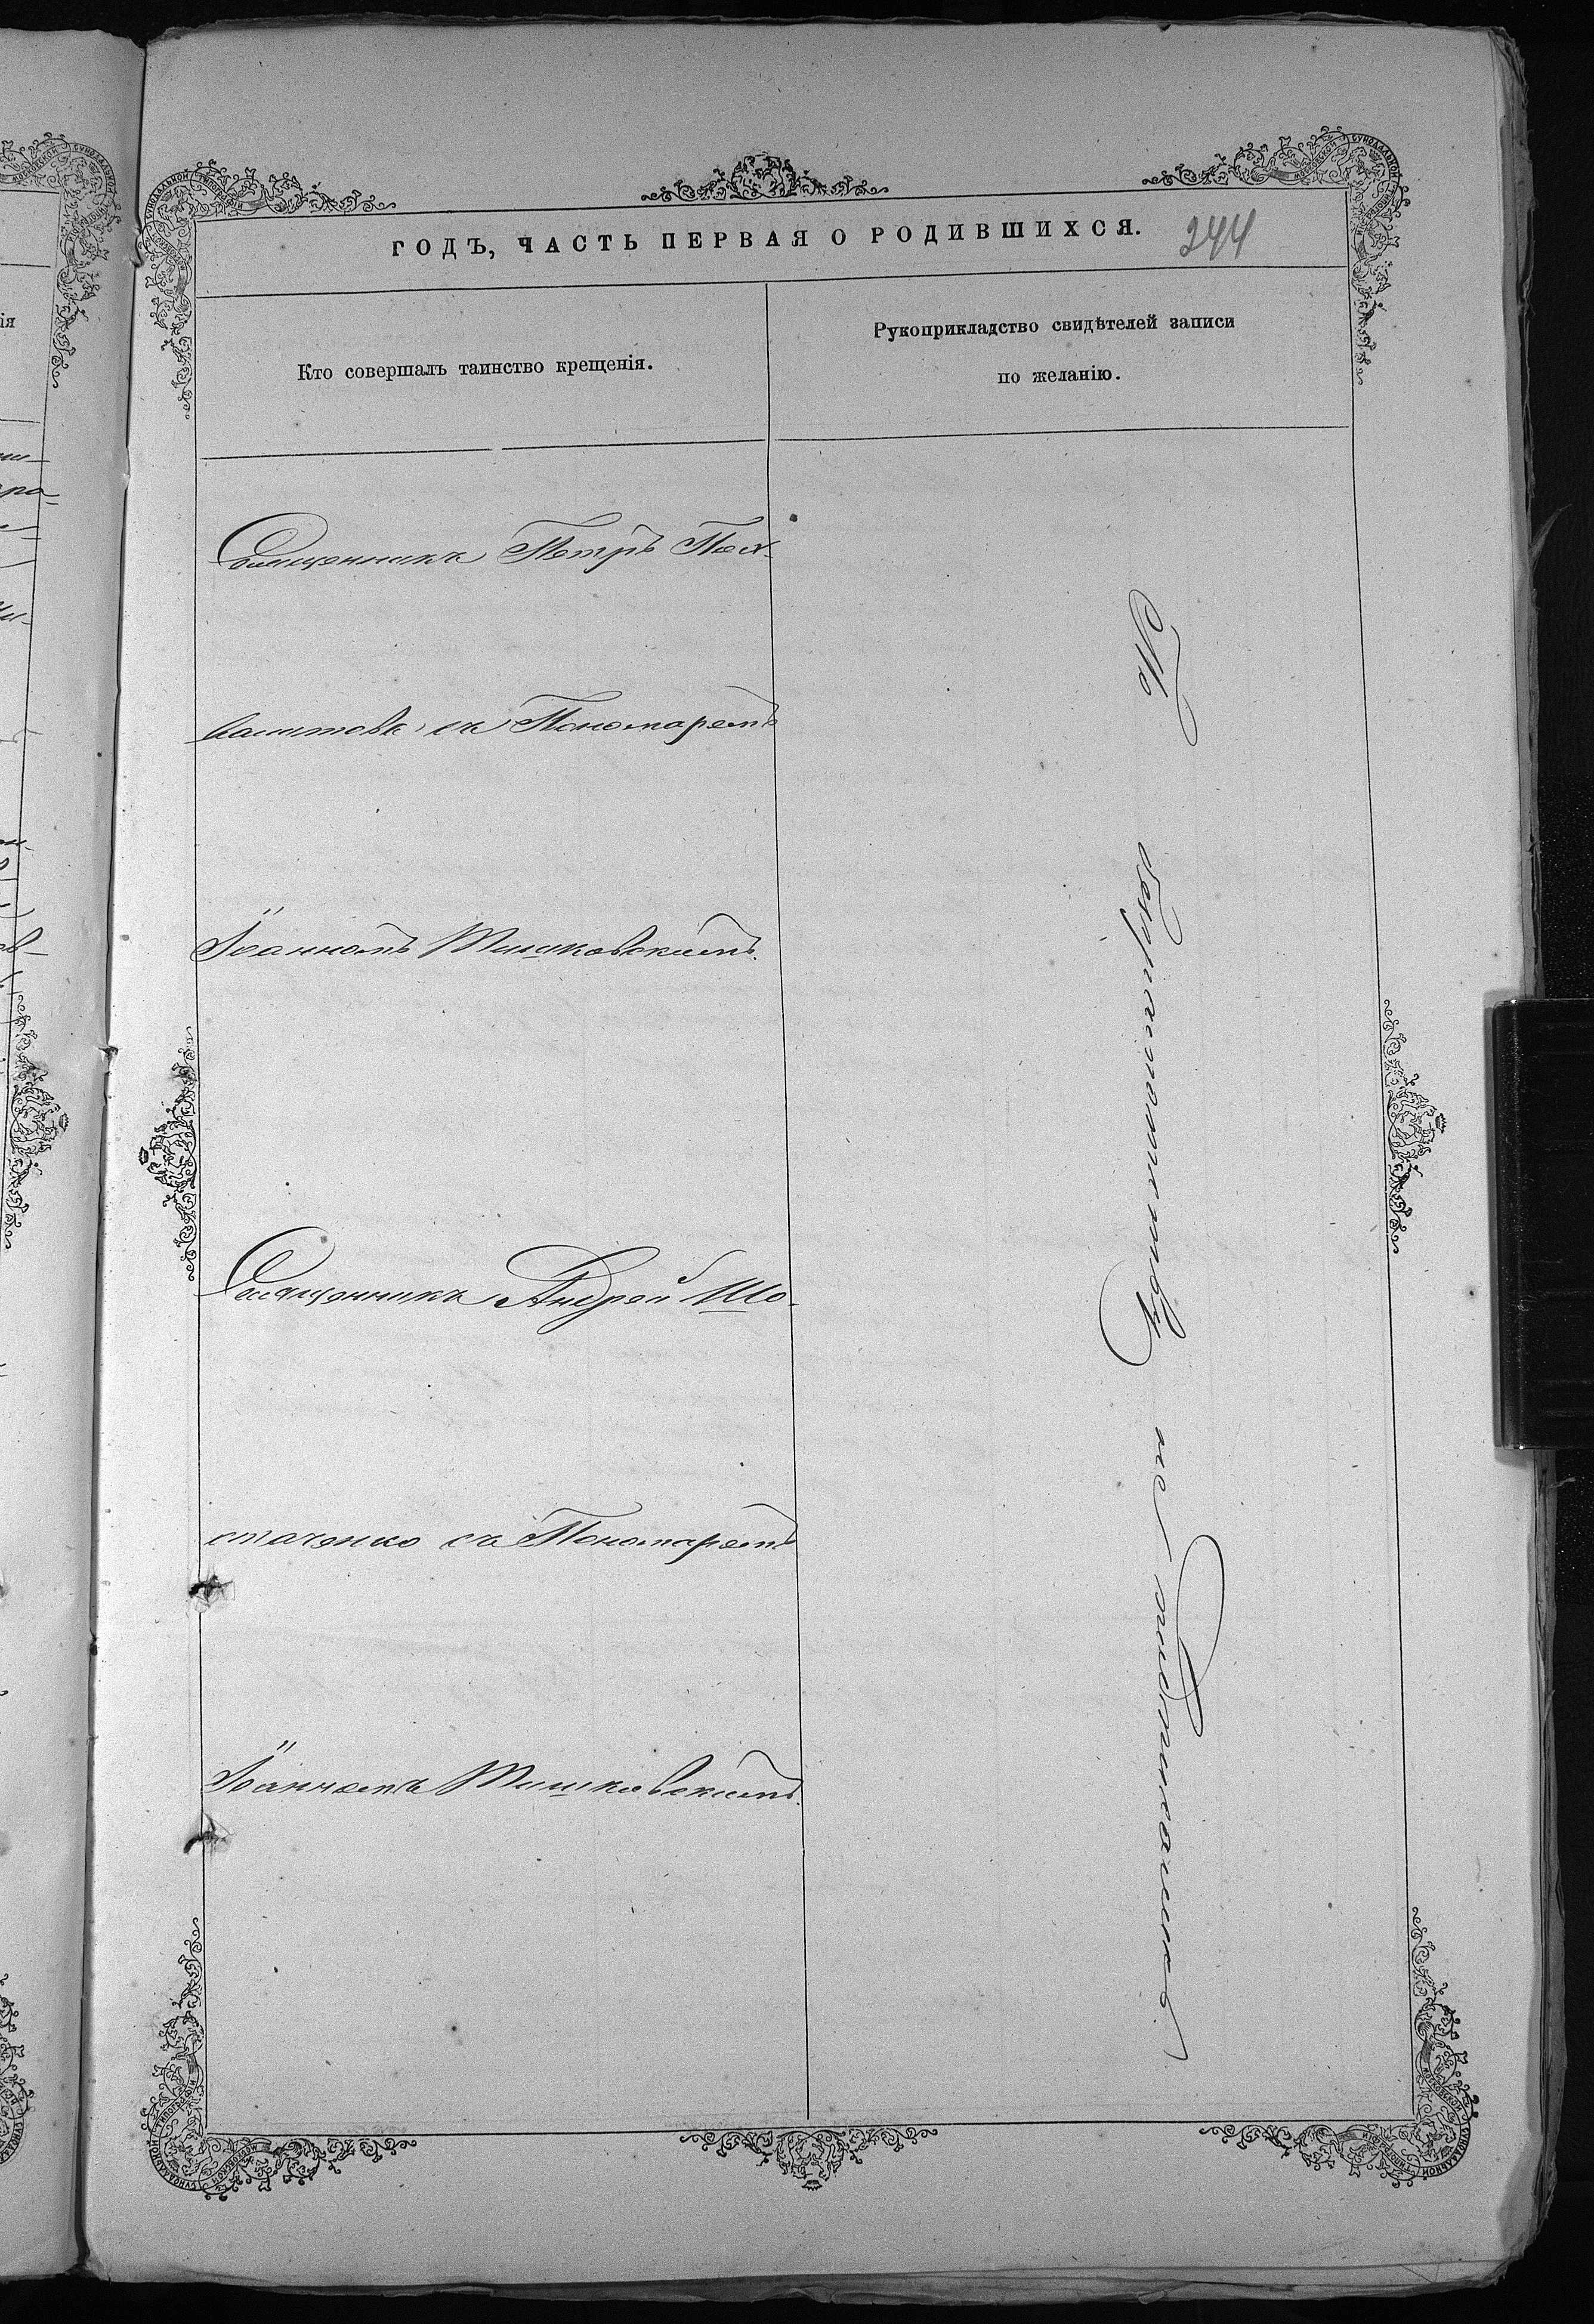 ГОДЪ, ЧАСТЬ ПЕРВАЯ О РОДИВШИХСЯ. 244
Кто совершалъ таинство крещенія.
Рукоприкладство свидѣтелей записи
по желанію.
Священникъ Петръ Пох-
валитовъ съ Пономаремъ
Іоанномъ Тишковскимъ.
Священникъ Андрей Шо-
стаченко съ Пономаремъ
Іоанномъ Тишковскимъ.
По безграмотству не подписались